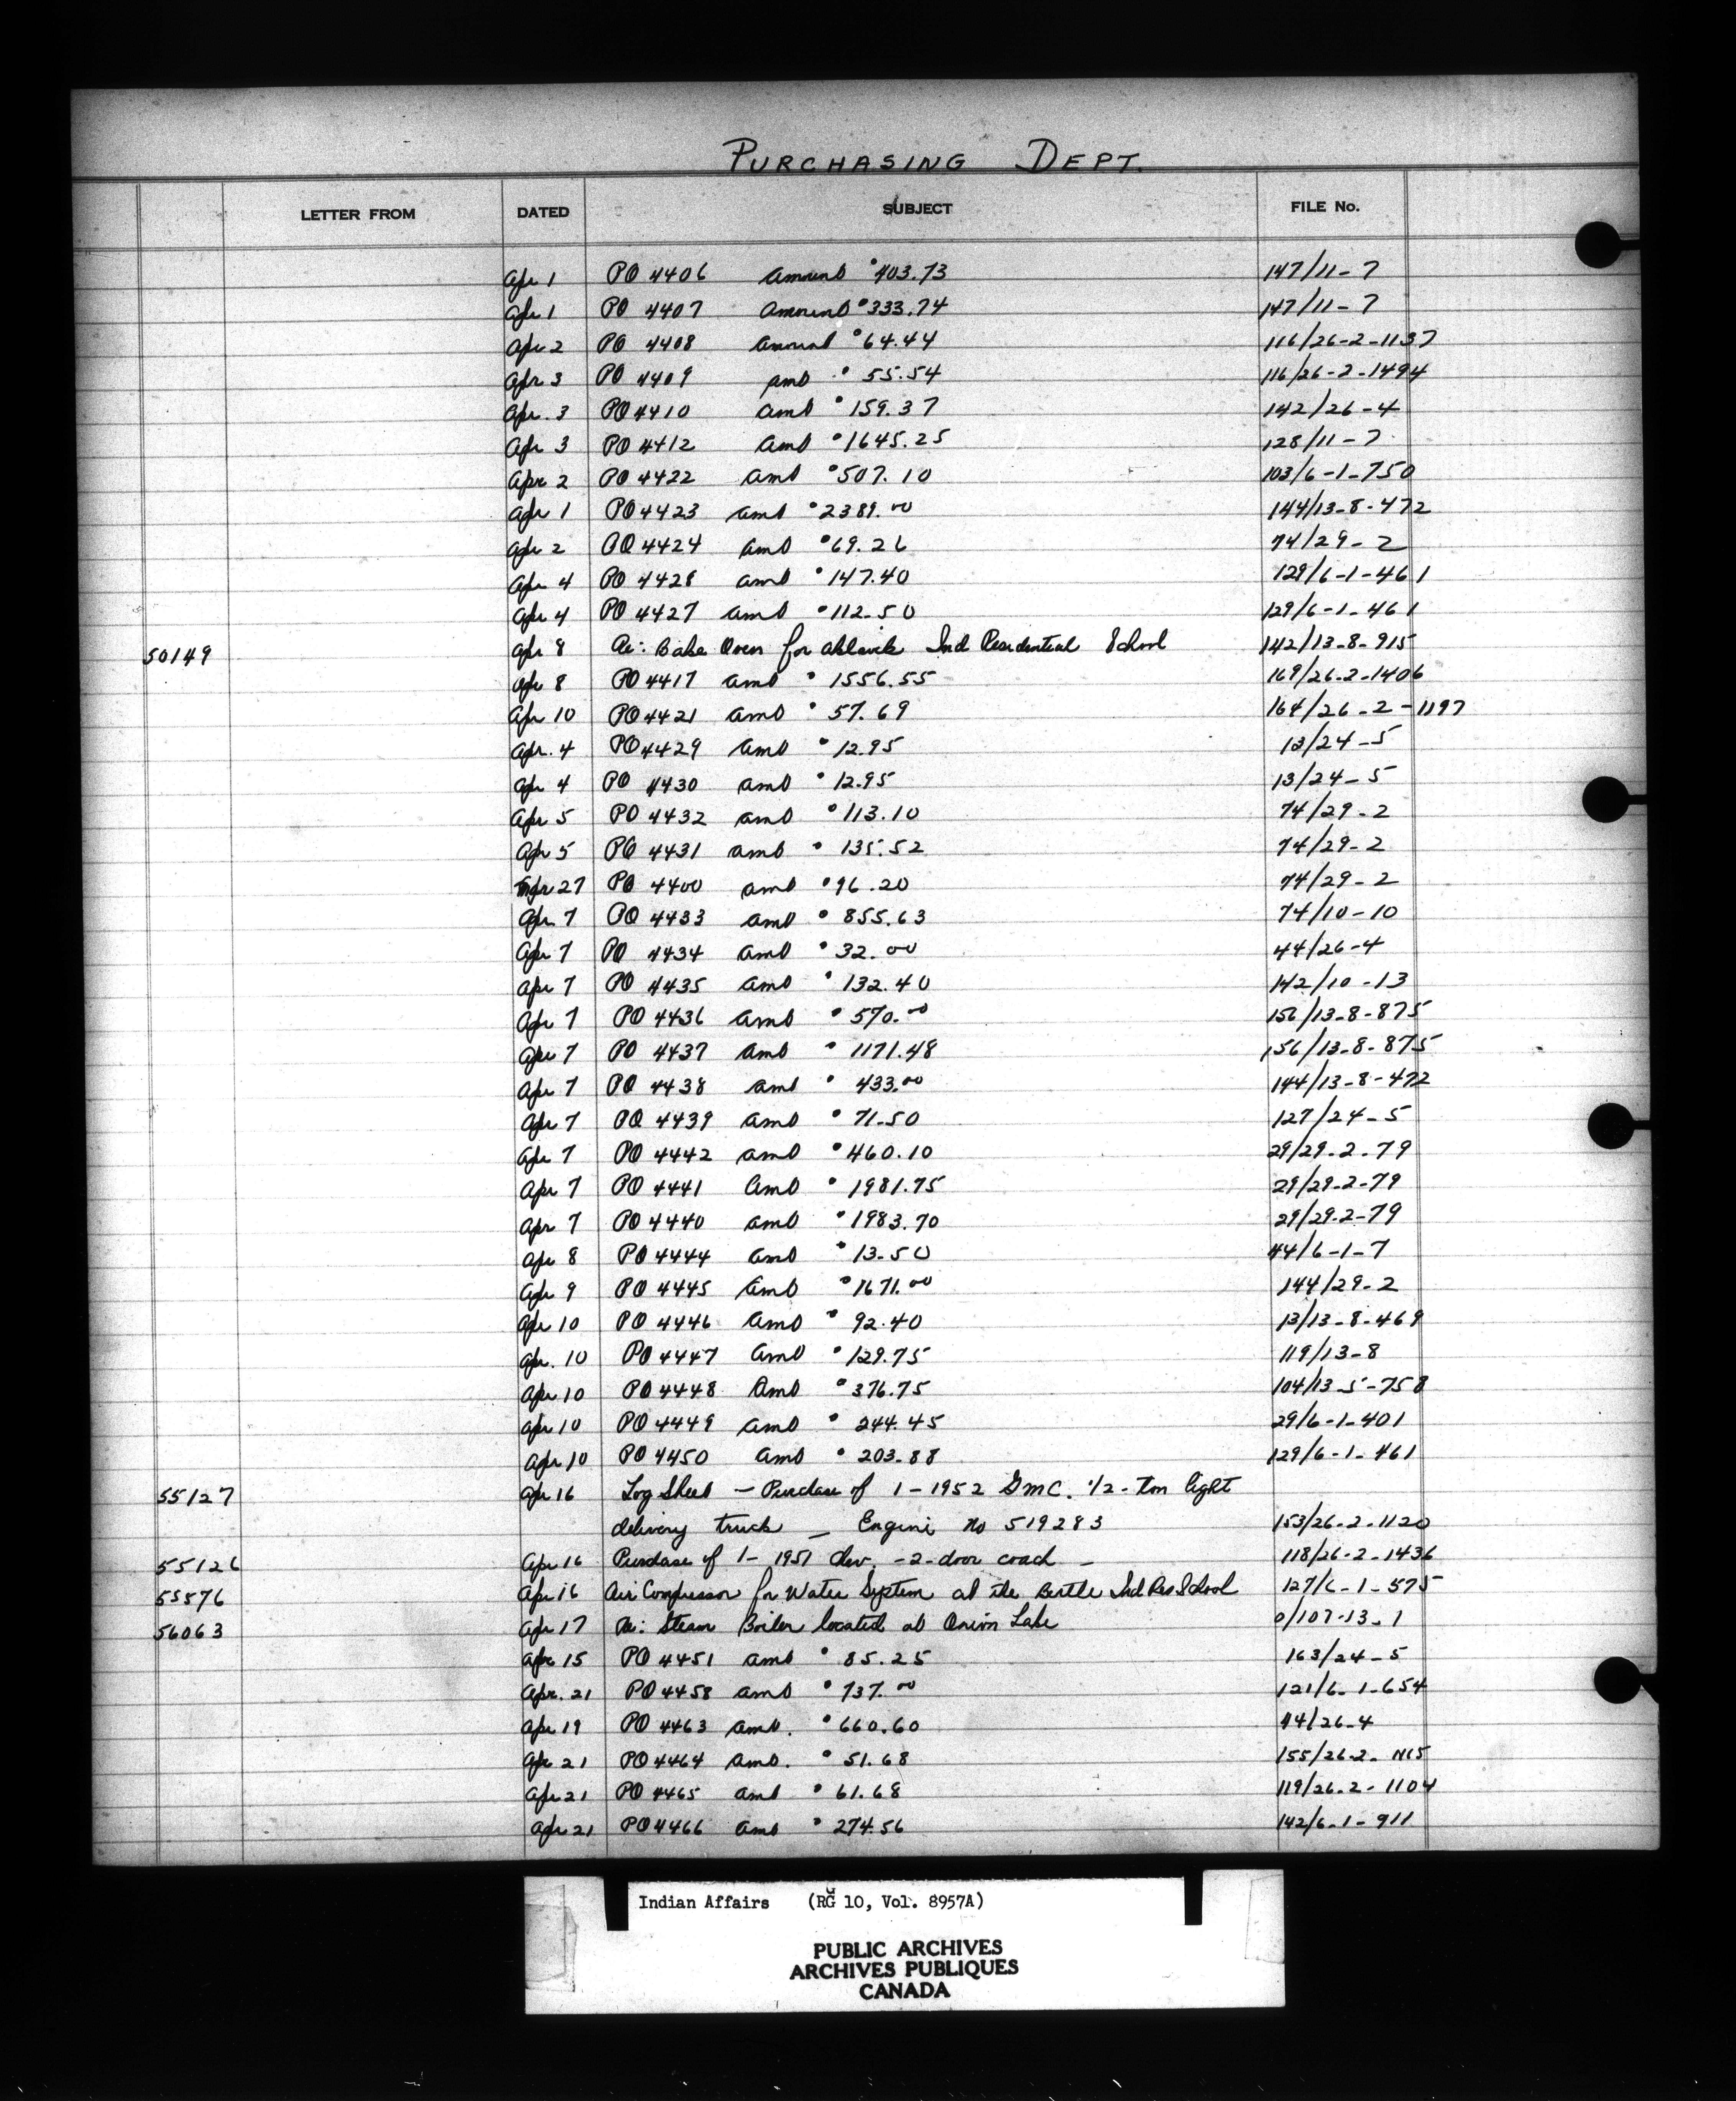 PURCHASING DEPT.
LETTER FROM DATED SUBJECT FILE No.
Apr 1 PO 4406 Amount $403.73 147/11-7
Apr 1 PO 4407 Amount $333.74 147/11-7
Apr 2 PO 4408 Amount $64.44 116/26-2-1137
Apr 3 PO 4409 amt $55.54 116/26-2-1494
Apr. 3 PO 4410 amt $159.37 142/26-4
Apr 3 PO 4412 Amt $1645.25 128/11-7
Apr 2 PO 4422 amt $507.10 103/6-1-750
Apr 1 PO 4423 amt $2389.00 144/13-8-472
Apr 2 PO 4424 amt $69.26 74/29-2
Apr 4 PO 4428 amt $147.40 129/6-1-461
Apr 4 PO 4427 amt $112.50 129/6-1-461
50149 Apr 8 Re: Bake Oven for Aklavik Ind Residential School 142/13-8-915
Apr 8 PO 4417 amt $1556.55 169/26-2-1406
Apr 10 PO 4421 amt $57.69 164/26-2-1197
Apr. 4 PO 4429 amt $12.95 13/24-5
Apr 4 PO 4430 amt $12.95 13/24-5
Apr 5 PO 4432 amt $113.10 74/29-2
Apr 5 PO 4431 amt $135.52 74/29-2
27 PO 4400 amt $96.20 74/29-2
Apr 7 PO 4433 amt $855.63 74/10-10
Apr 7 PO 4434 amt $32.00 44/26-4
Apr 7 PO 4435 amt $132.40 142/10-13
Apr 7 PO 4436 amt $570.00 156/13-8-875
Apr 7 PO 4437 amt $1171.48 156/13-8-875
Apr 7 PO 4438 amt $433.00 144/13-8-472
Apr 7 PO 4439 amt $71.50 127/24-5
Apr 7 PO 4442 amt $460.10 29/29-2-79
Apr 7 PO 4441 Amt $1981.75 29/29-2-79
Apr 7 PO 4440 amt $1983.70 29/29-2-79
Apr 8 PO 4444 amt $13.50 44/6-1-7
Apr 9 PO 4445 amt $1671.00 144/29-2
Apr 10 PO 4446 amt $92.40 13/13-8-469
Apr. 10 PO 4447 Amt $129.75 119/13-8
Apr 10 PO 4448 Amt $376.75 104/13-5-758
Apr 10 PO 4449 amt $244.45 29/6-1-401
Apr 10 PO 4450 amt $203.88 129/6-1-461
55127 Apr 16 Log Sheet - Purchase of 1-1952 GMC. 1/2-Ton light
delivery truck - Engine No 519283 153/26-2-1120
55126 Apr 16 Purchase of 1-1951 Chev. -2-door coach - 118/26-2-1436
55576 Apr 16 Air Compressor for Water System at the Birtle Ind Res School 127/6-1-575
56063 Apr 17 Re: Steam Boiler located at Onion Lake 0/107-13-1
Apr 15 PO 4451 amt $85.25 163/24-5
Apr. 21 PO 4458 amt $737.00 121/6-1-654
Apr 19 PO 4463 amt. $660.60 44/26-4
Apr 21 PO 4464 amt. $51.68 155/26-2-
Apr 21 PO 4465 amt $61.68 119/26-2-1104
Apr 21 PO 4466 amt $274.56 142/6-1-911
Indian Affairs (RG 10, Vol. 8957A)
PUBLIC ARCHIVES
ARCHIVES PUBLIQUES
CANADA